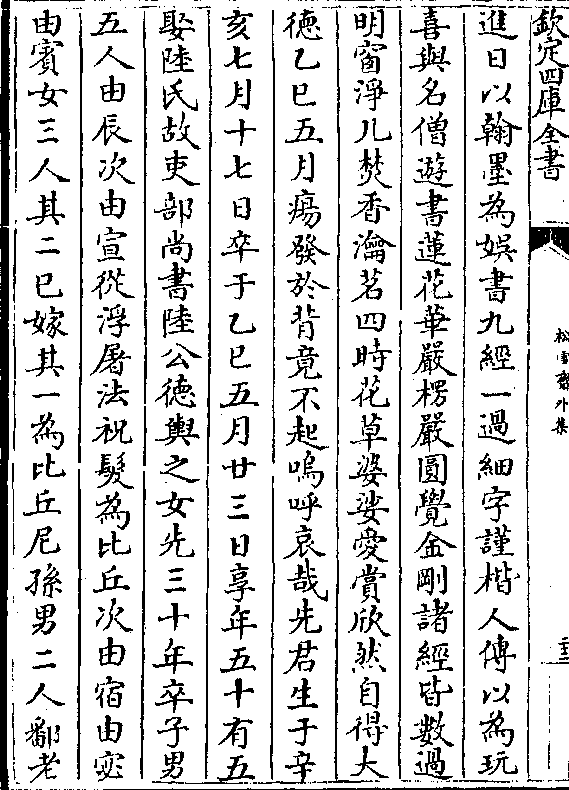 欽定四庫全書
松雪齋外集
二十三
進日以翰墨為娛書九經一過細字謹楷人傳以為玩
喜與名僧遊書蓮花華嚴楞嚴圓覺金剛諸經皆數過
明窗淨几焚香瀹茗四時花草婆娑愛賞欣然自得大
德乙巳五月瘍發於背竟不起嗚呼哀哉先君生于辛
亥七月十七日卒于乙巳五月廿三日享年五十有五
娶陸氏故吏部尚書陸公德輿之女先三十年卒子男
五人由辰次由宣從浮屠法祝髮為比丘次由宿由宓
由賓女三人其二已嫁其一為比丘尼孫男二人鄱老